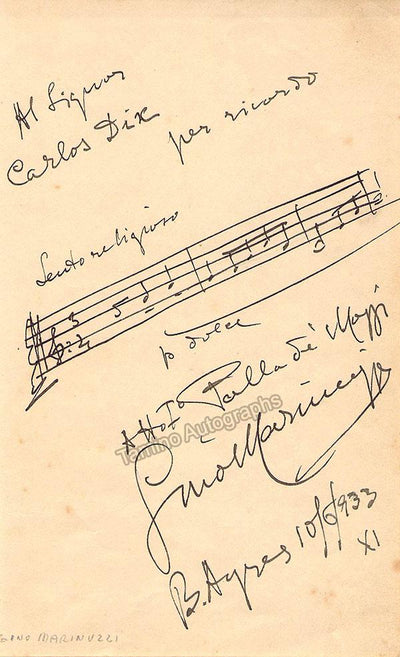 Al Signor
Carlos Dix
per ricordo
Lento religioso
3
4
p dolce
Atto I° Palla de' Mozzi
Tamino Autographs
Gino Marinuzzi
B. Ayres 10/6/933
XI
GINO MARINUZZI